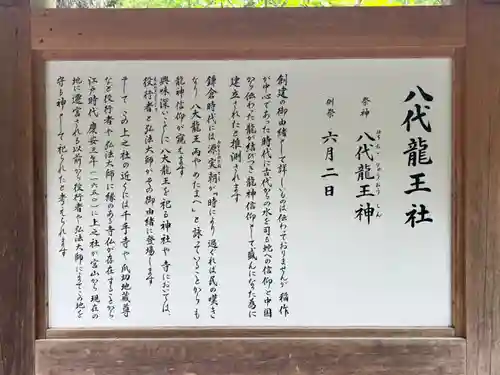 八代龍王社
祭神 八代龍王神
はちだいりゅうおうしん
例祭 六月二日
創建の御由緒として詳しいものは伝わっておりませんが 稲作
が中心であった時代に古代からの水を司る地への信仰と中国
から伝わった龍が結びつき龍神信仰として盛んになった為に
建立されたと推測されます
鎌倉時代には 源実朝が「時により 過ぐれば民の嘆き
なり 八大龍王 雨やめたまへ」と詠っていることからも
龍神信仰が窺えます
興味深いことに 八大龍王を祀る神社や 寺においては、
役行者と 弘法大師がその御由緒に登場します
そして この上之社の近くには 千手寺や 爪切地蔵尊
など 役行者や 弘法大師に縁のある寺仏が存在することから
江戸時代 慶安三年(一六五〇)に上之社が宮山から 現在の
地に遷宮される以前から役行者や 弘法大師によってこの地を
守る神として 祀られたと考えられます